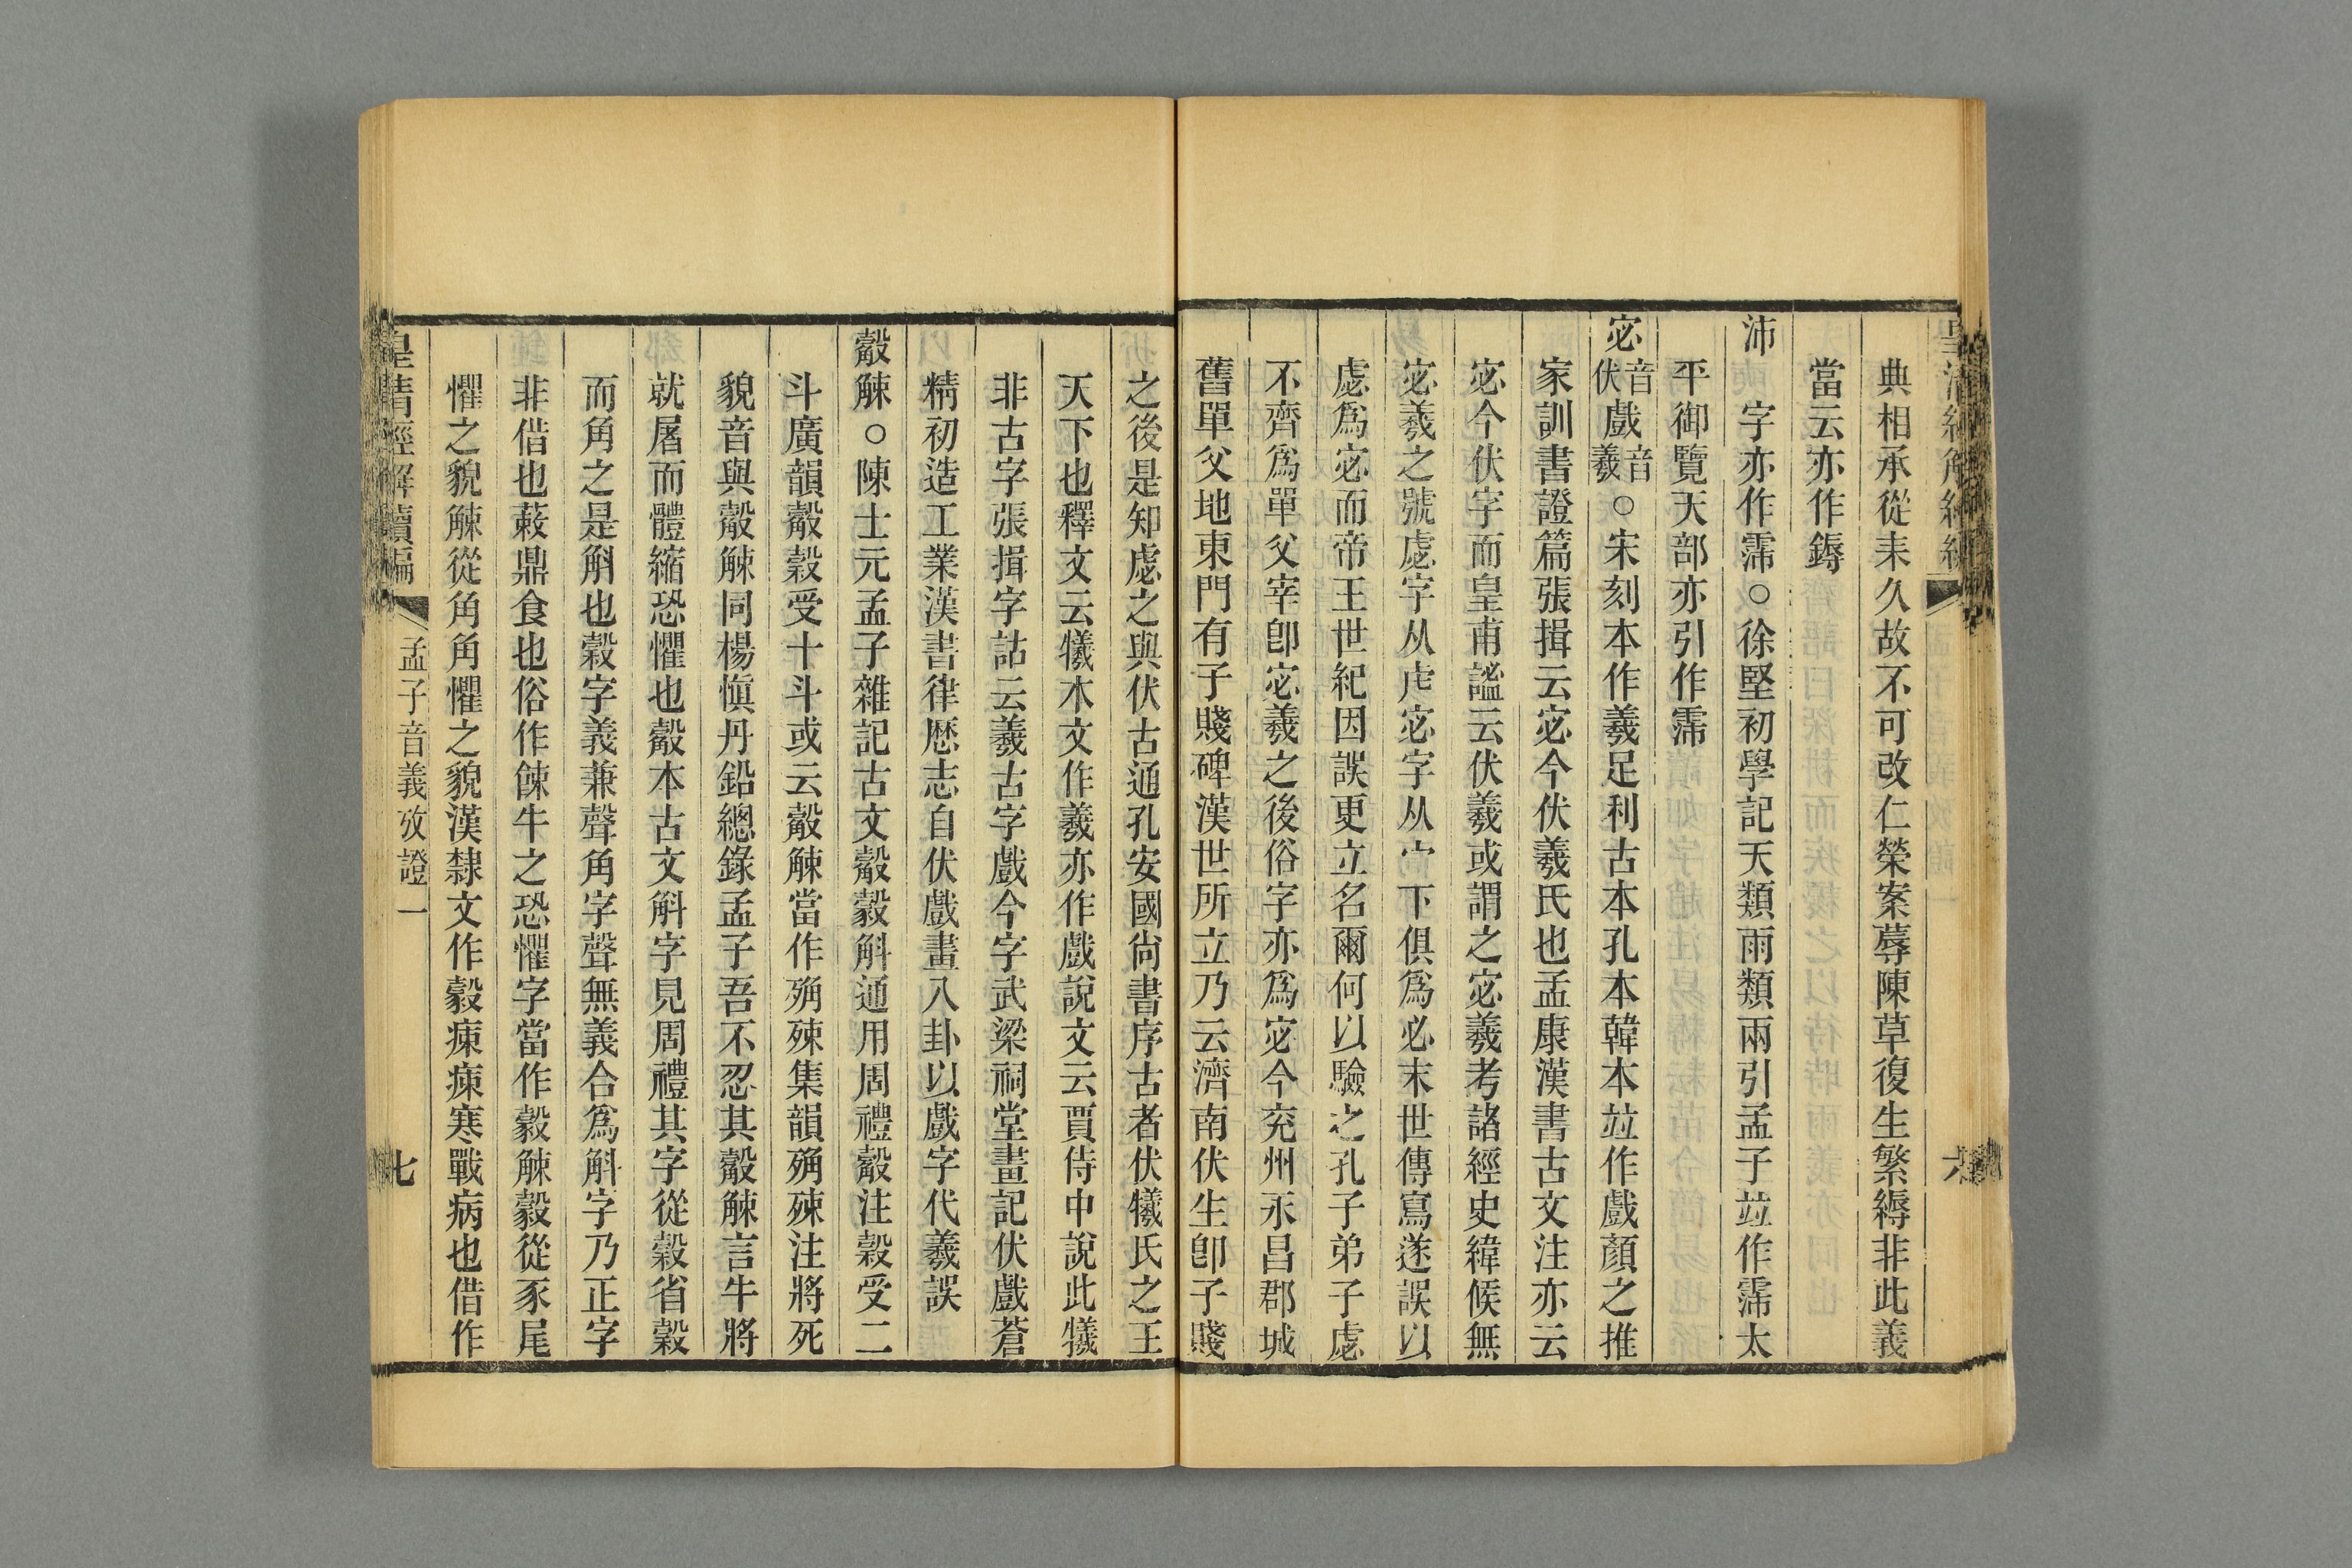 典相承從耒久故不可改仁榮案蓐陳草復生繁縟非此義
當云亦作鎒
沛　字亦作霈○徐堅初學記天類雨類兩引孟子竝作霈太
平御覽天部亦引作霈
宓音伏戲音羲○宋刻本作羲足利古本孔本韓本竝作戲顏之推
家訓書證篇張揖云宓今伏羲氏也孟康漢書古文注亦云
宓今伏字而皇甫謐云伏羲或謂之宓羲考諸經史緯候無
宓羲之號虙字从虍宓字从宀下俱爲必末世傳寫遂誤以
虙爲宓而帝王世紀因誤更立名爾何以驗之孔子弟子虙
不齊爲單父宰卽宓羲之後俗字亦爲宓今兖州永昌郡城
舊單父地東門有子賤碑漢世所立乃云濟南伏生卽子賤
之後是知虙之與伏古通孔安國尙書序古者伏犧氏之王
天下也釋文云犧本文作羲亦作戲說文云賈侍中說此犧
非古字張揖字詁云羲古字戲今字武梁祠堂畫記伏戲蒼
精初造工業漢書律厯志自伏戲畫八卦以戲字代羲誤
觳觫○陳士元孟子雜記古文觳觳斛通用周禮觳注穀受二
斗廣韻觳穀受十斗或云觳觫當作㱿殐集韻㱿殐注將死
貌音與觳觫同楊愼丹鉛總錄孟子吾不忍其觳觫言牛將
就屠而體縮恐懼也觳本古文斛字見周禮其字從穀省穀
而角之是斛也穀字義兼聲角字聲無義合爲斛字乃正字
非借也蔌鼎食也俗作餗牛之恐懼字當作豰觫豰從豕尾
懼之貌觫從角角懼之貌漢隸文作豰㾊㾊寒戰病也借作
皇清經解續編　孟子音義攷證一　七